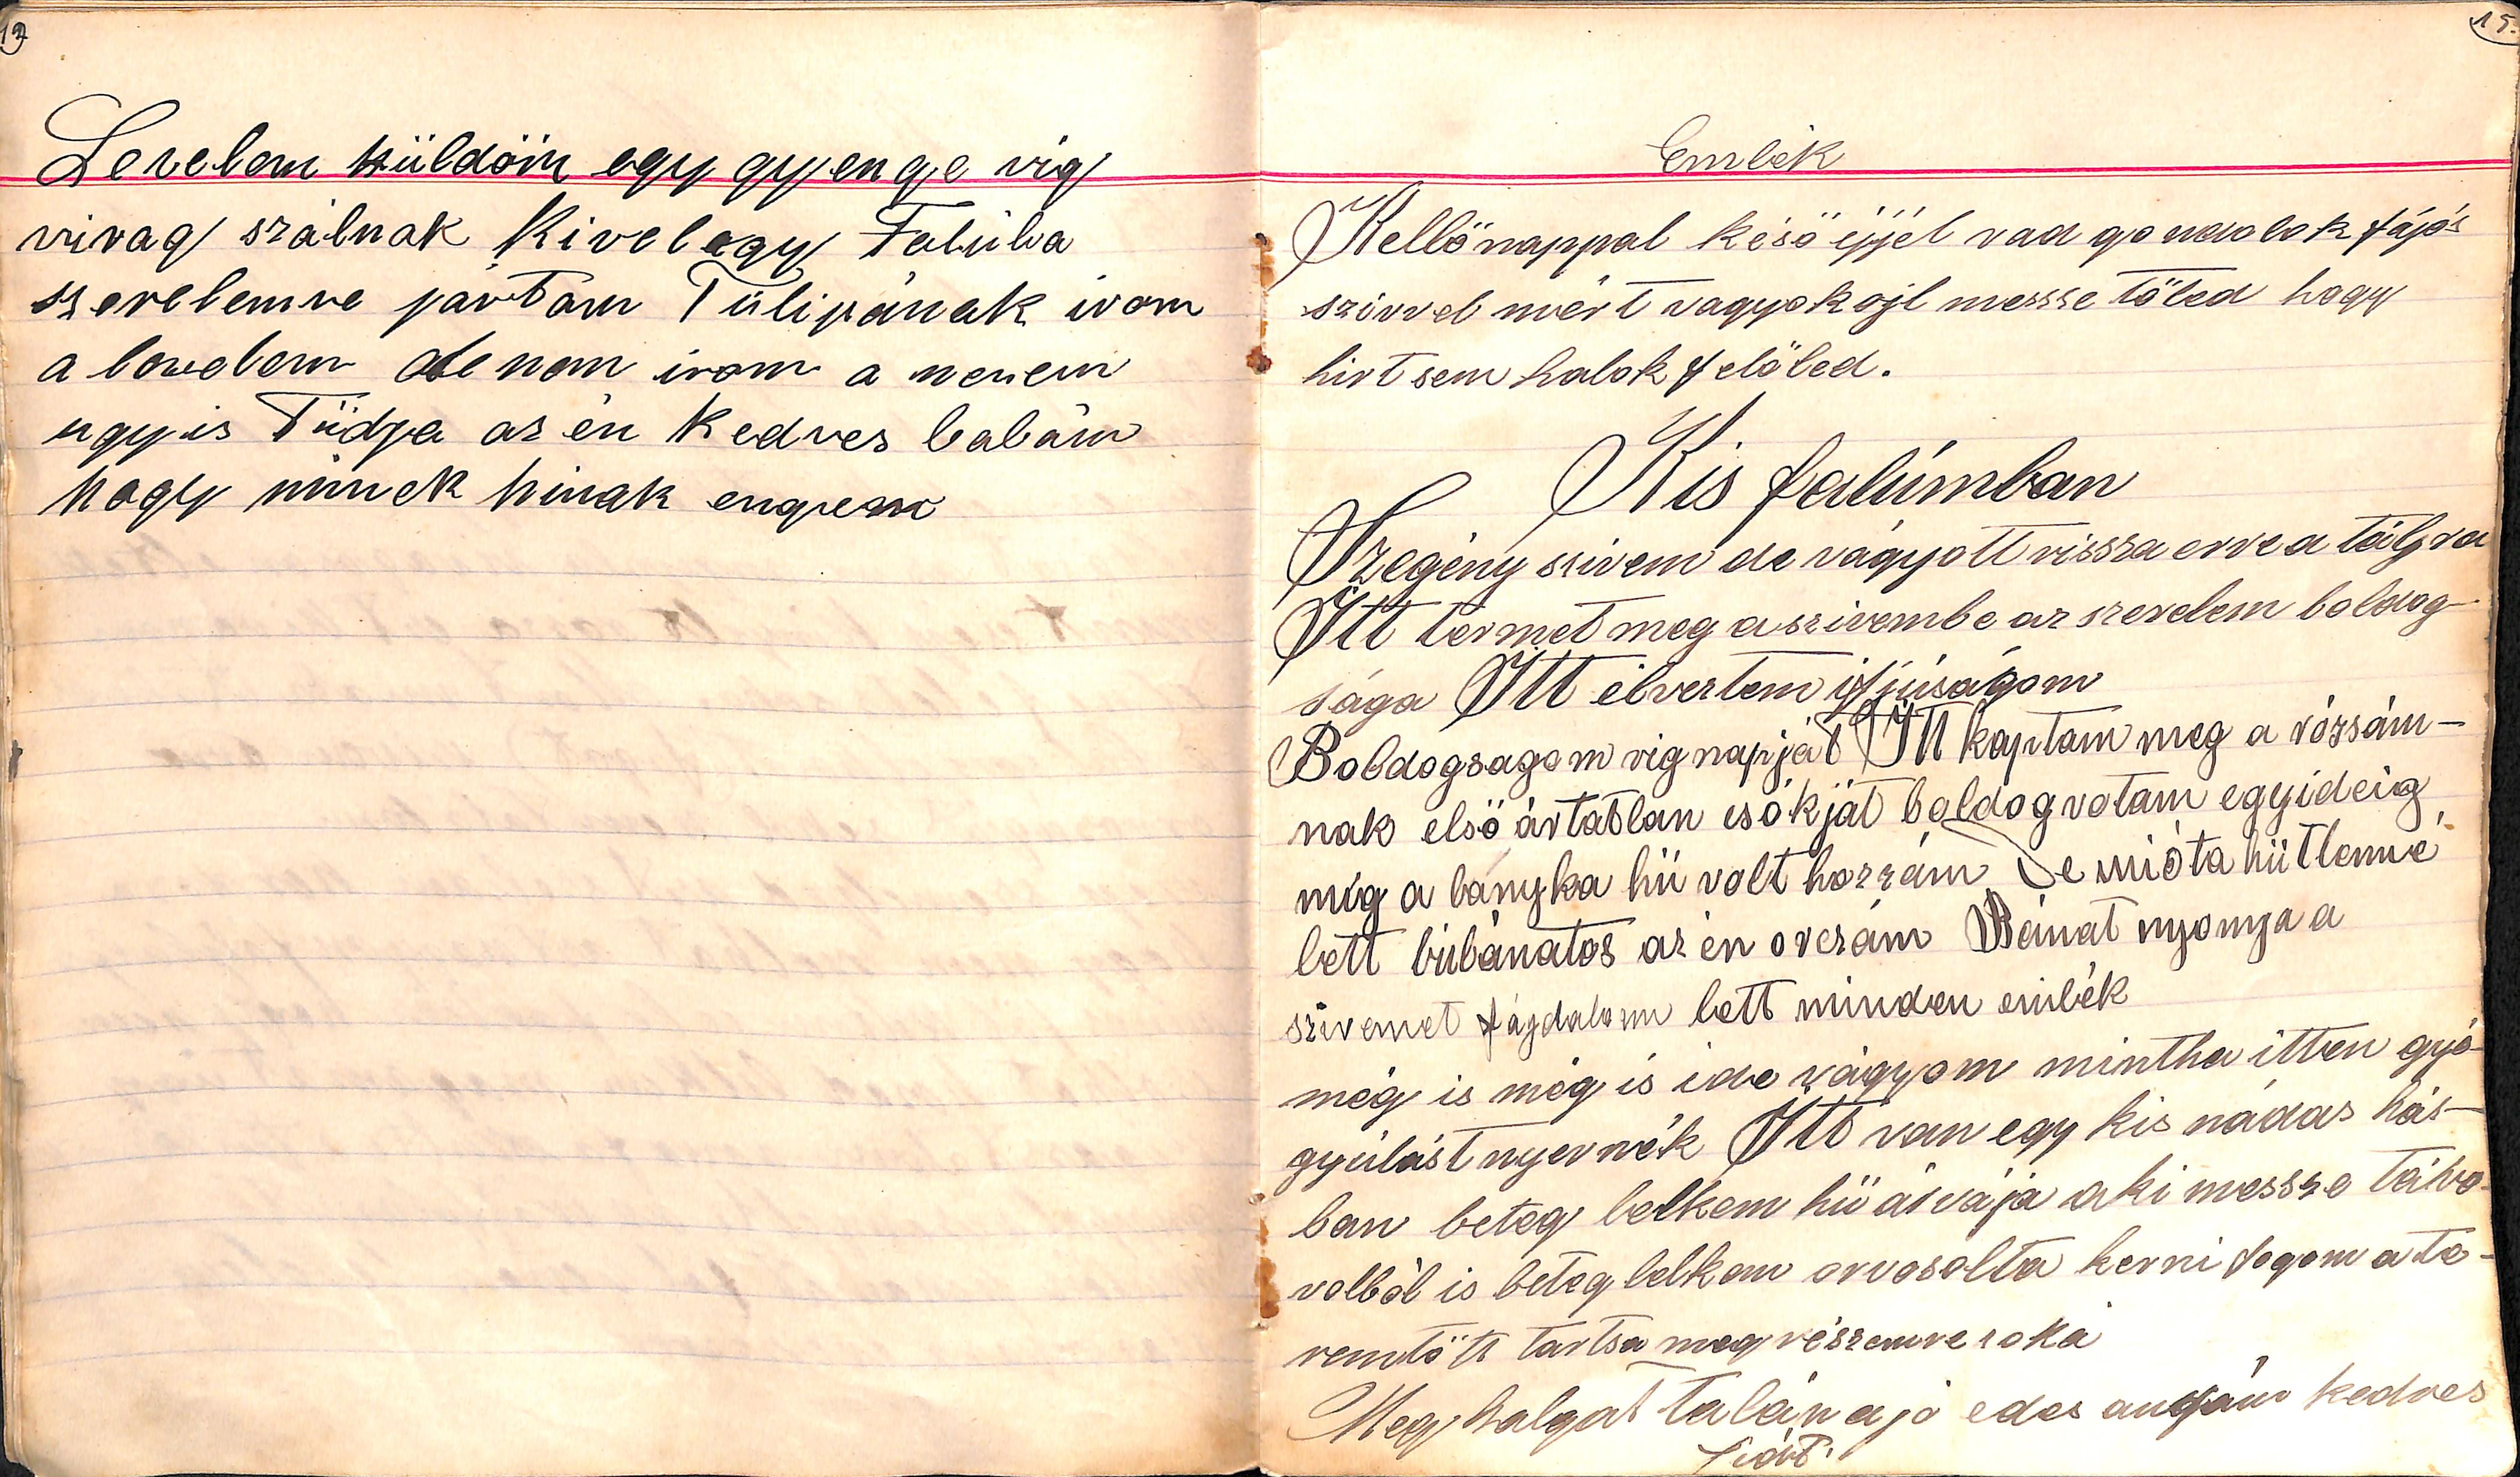 12
Levelem küldöm egy gyenge vig
virag szálnak Kivel egy Faluba
szerelemre jártam Tulipának irom
a levelem de nem irom a nevem
ugy is Tüdja az én Kedves babám
hogy minek hinak engem
15.
Emlék
Kellö nappal késö éjjel vad gondolok fájós
szivvel mért vagyok ojl messse töled hogy
hirt sem halok felöled.
Kis falúmban
Szegény szivem de vágyott vissza erre a tájra
Itt termet meg a szivembe az szerelem boldog
sága Itt elvertem ifjúságom
Boldogsagom vig napját Itt kaptam meg a rózsám-
nak elsö ártatlan csókját boldog votam egyideig
mig a lányka hü volt hozzám De mióta hütlenné
lett búbánatos az én orczám Bánat nyomja a
szivemet fájdalom lett minden emlék
még is még is ide vágyom mintha itten gyó-
gyúlást nyernék Itt van egy kis nádas ház-
ban beteg lelkem hü ává ja aki messze távo-
volból is beteg lelkem orvosolta kerni fogom a te-
remtöt tartsa meg részemre soká
Meg halgat talán a jó edes anyám kedves
fiát.